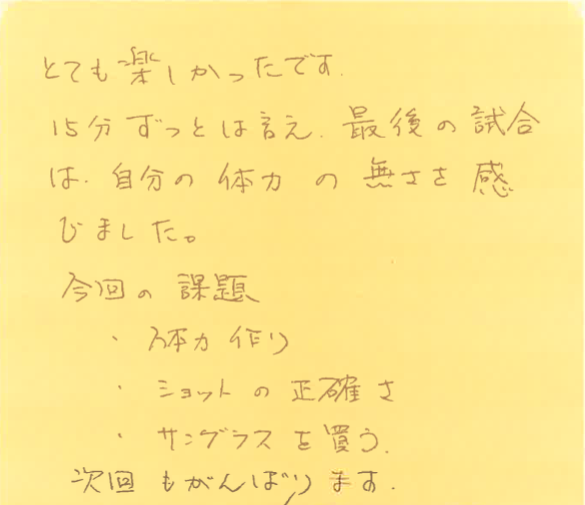 とても楽しかったです.
15分ずっとは言え、最後の試合
は、自分の体力の無さを感
じました。
今回の課題
・体力作り
・ショットの正確さ
・サングラスを買う.
次回もがんばります.